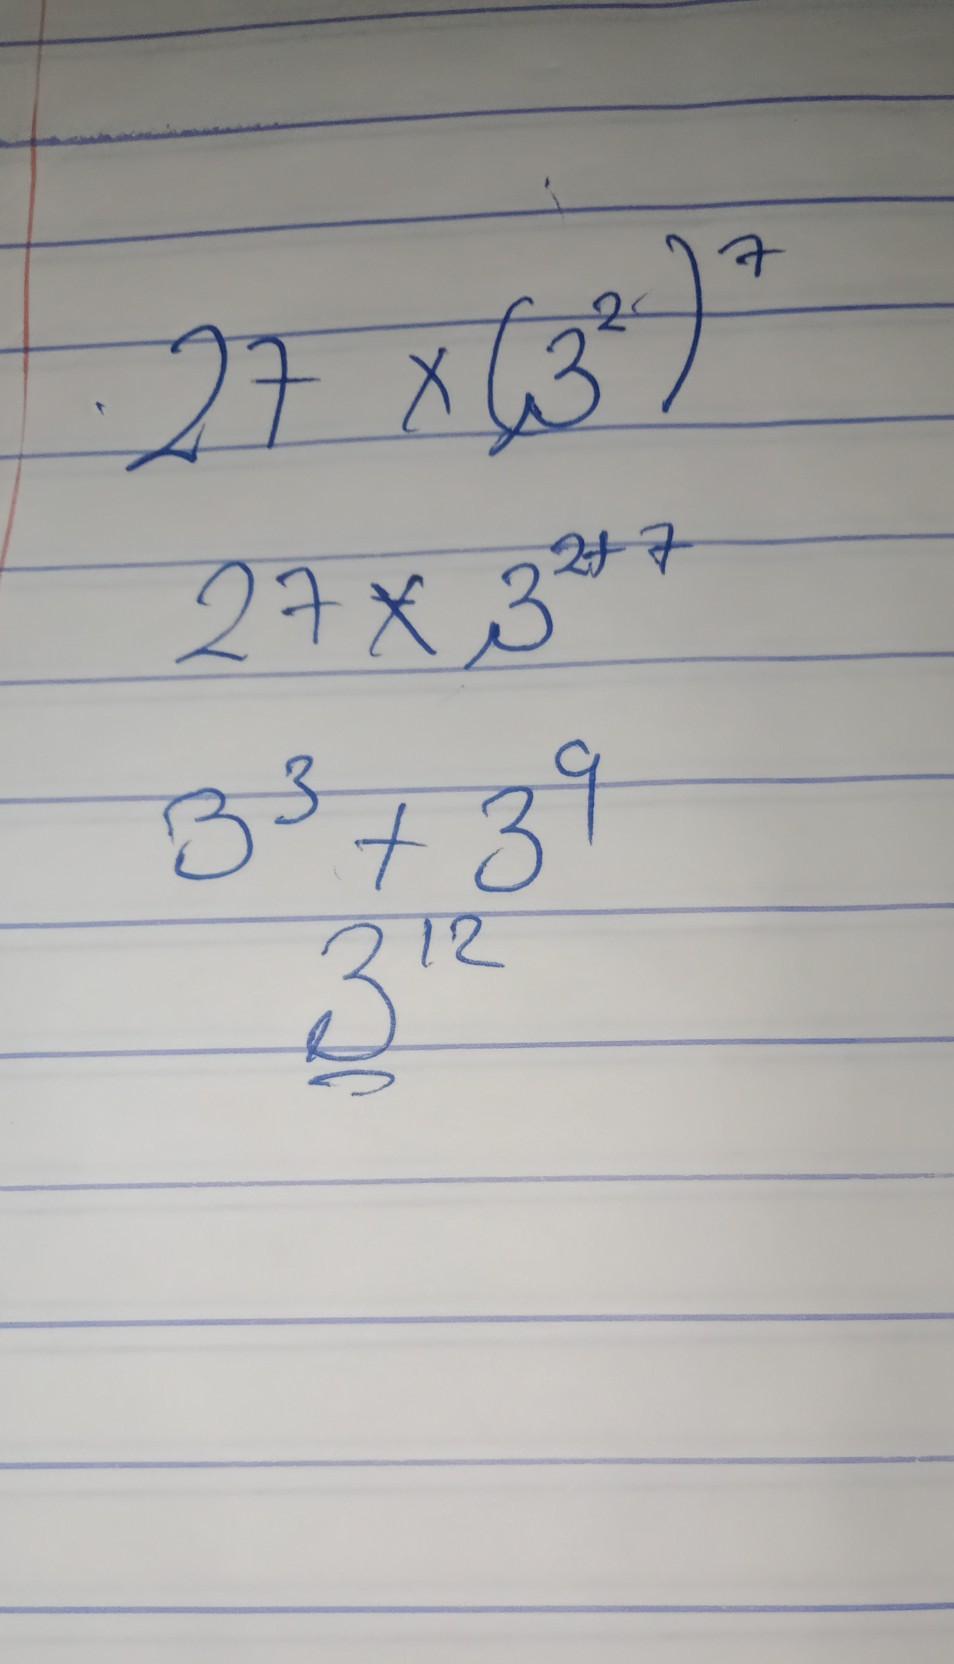 27 × (3²)⁷
27 × 3²⁺⁷
3³ + 3⁹
3¹²